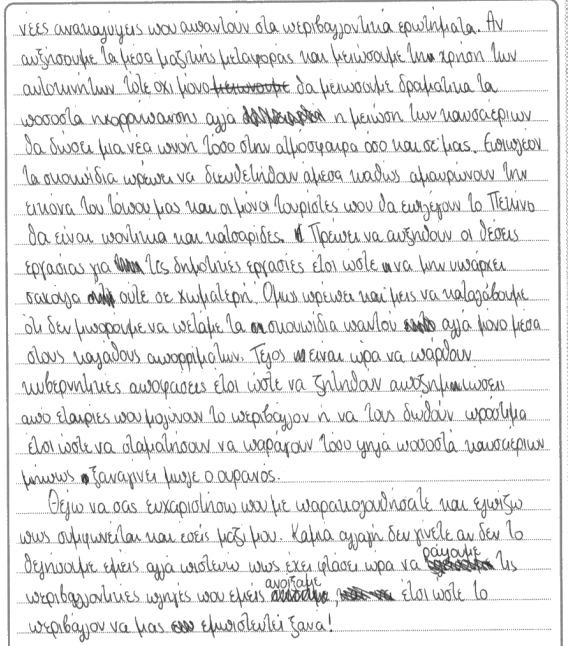 νέες ανακαλύψεις που απαντούν στα περιβαλλοντικά ερωτήματα. Αν
αυξήσουμε τα μέσα μαζικής μεταφοράς και μειώσουμε την χρήση των
αυτοκινήτων τότε όχι μόνο μειώνουμε θα μειώσουμε δραματικά τα
ποσοστά ηχορρύπανσης αλλά η μείωση των καυσαερίων
θα δώσει μια νέα πνοή τόσο στην ατμόσφαιρα όσο και σε μας. Επιπλέον
τα σκουπίδια πρέπει να διευθετηθούν άμεσα καθώς αμαυρώνουν την
εικόνα του τόπου μας και οι μόνοι τουρίστες που θα επιλέγουν το Πεκίνο
θα είναι ποντίκια και κατσαρίδες. Πρέπει να αυξηθούν οι θέσεις
εργασίας για τις δημοτικές εργασίες έτσι ώστε να μην υπάρχει
σακούλα ούτε σε χωματερή. Όμως πρέπει και μεις να καταλάβουμε
ότι δεν μπορούμε να πετάμε τα σκουπίδια παντού αλλά μόνο μέσα
στους κάλαθους απορριμάτων. Τέλος είναι ώρα να παρθούν
κυβερνητικές αποφάσεις έτσι ώστε να ζητηθούν αποζημιώσεις
απο εταιρίες που μολύνουν το περιβάλλον ή να τους δωθούν πρόστιμα
έτσι ώστε να σταματήσουν να παράγουν τόσο ψηλά ποσοστά καυσαερίων
μήπως ξαναγίνει μπλε ο ουρανός.
Θέλω να σας ευχαριστήσω που με παρακολουθήσατε και ελπίζω
πως συμφωνείται και εσείς μαζί μου. Καμιά αλλαγή δεν γίνετε αν δεν το
θελήσουμε εμείς αλλά πιστεύω πως έχει φτάσει ώρα να ράψουμε τις
περιβαλλοντικές πληγές που εμείς ανοίξαμε, έτσι ώστε το
περιβάλλον να μας εμπιστευτεί ξανά!